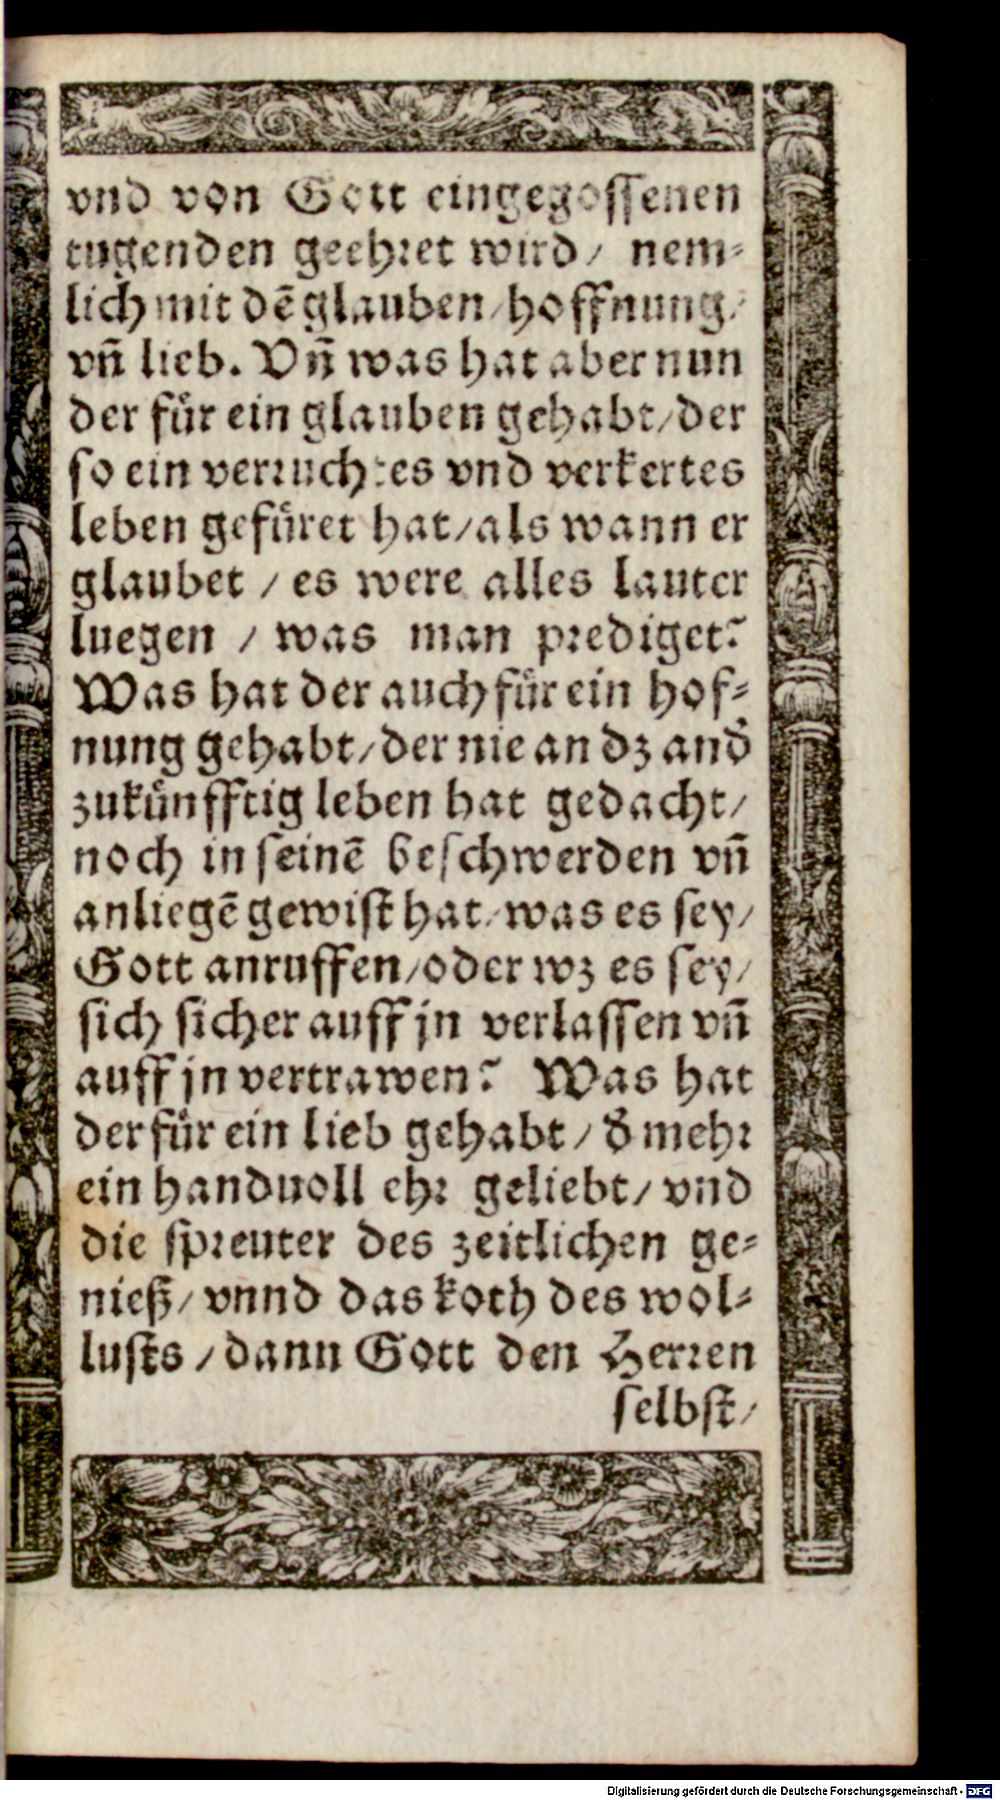 vnd von Gott eingegossenen
tugenden geehret wird / nem-
lich mit dẽ glauben / hoffnung /
vñ lieb. Vñ was hat aber nun
der für ein glauben gehabt / der
so ein verruchtes vnd verkertes
leben gefüret hat / als wann er
glaubet / es were alles lauter
luegen / was man prediget?
Was hat der auch für ein hof-
nung gehabt / der nie an dz and̕
zukünfftig leben hat gedacht /
noch in seinẽ beschwerden vñ
anliegẽ gewist hat / was es sey /
Gott anruffen / oder wz es sey /
sich sicher auff jn verlassen vñ
auff jn vertrawen? Was hat
der für ein lieb gehabt / d̕ mehr
ein handuoll ehr geliebt / vnd
die spreuter des zeitlichen ge-
nieß / vnnd das koth des wol-
lusts / dann Gott den Herren
selbst /
Digitalisierung gefördert durch die Deutsche Forschungsgemeinschaft - DFG